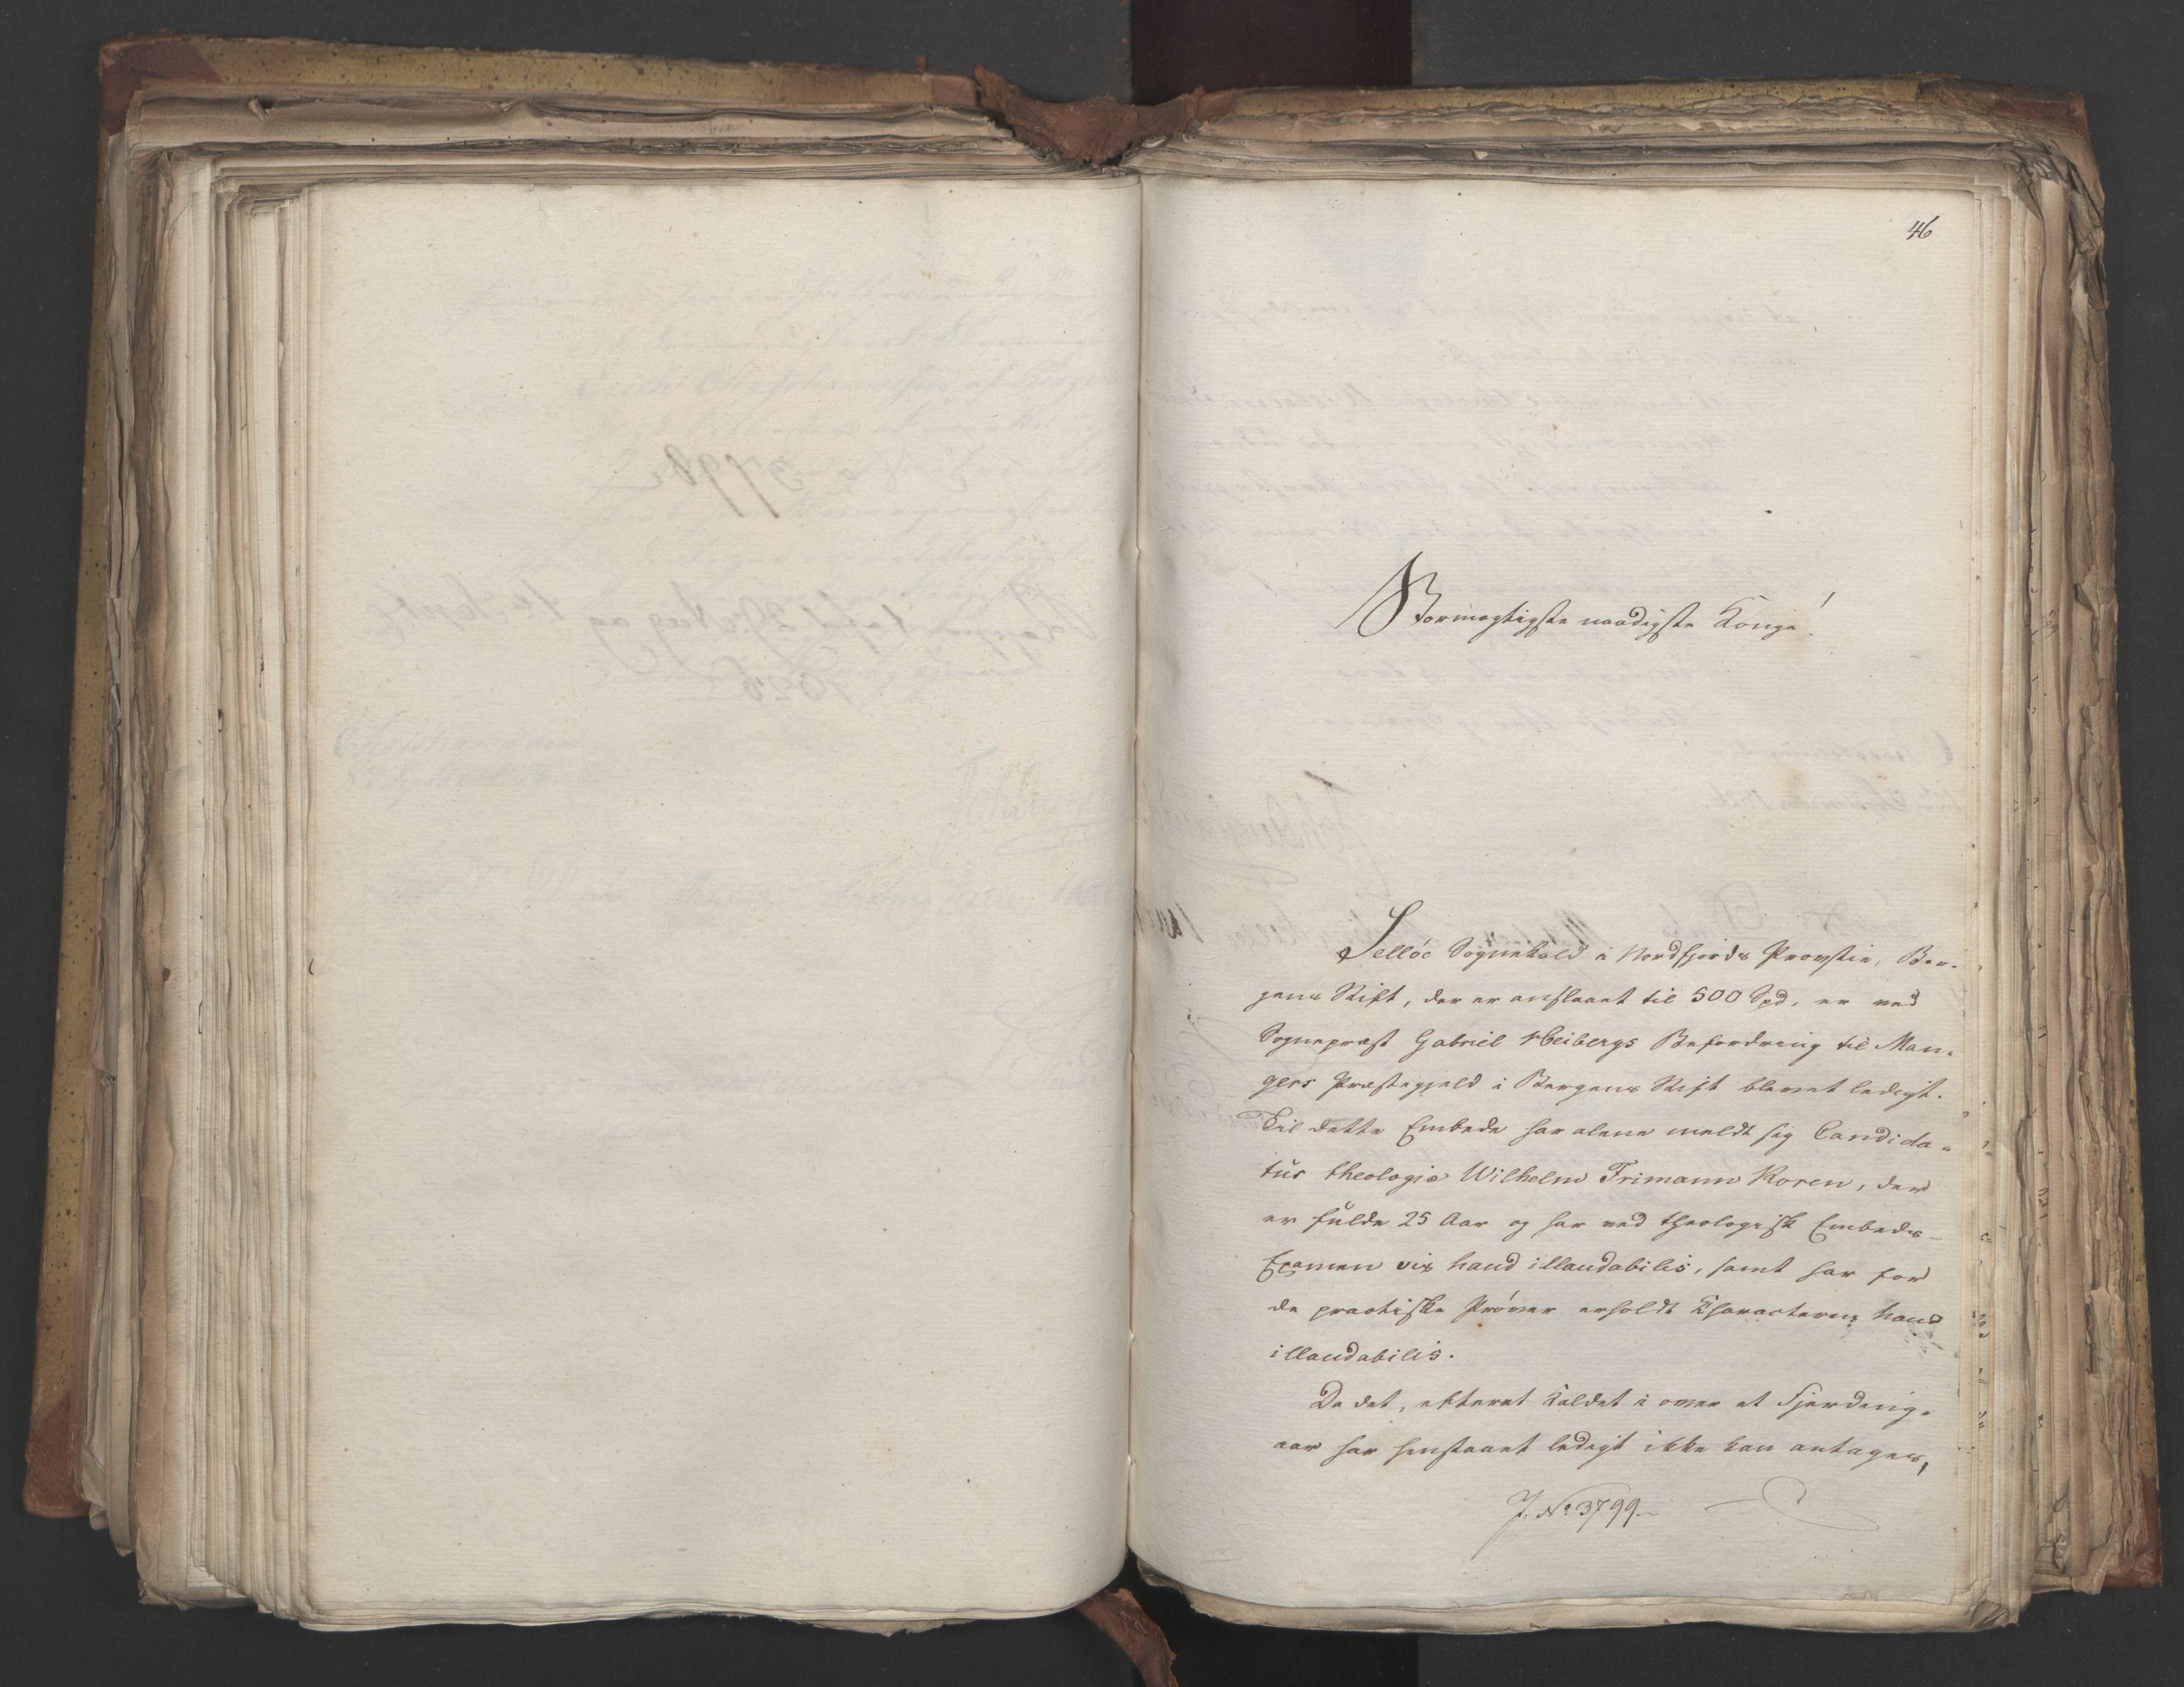 46
Stormægtigste naadigste Konge!
Selløe Sognekald i Nordfjords Provstie, Ber-
gens Stift, der er anslaaet til 500 Spd, er ved
Sognepræst Gabriel Heibergs Befordring til Man-
gers Præstegjeld i Bergens Stift blevet ledigt.
Til dette Embede har alene meldt sig Candida-
tus theologiæ Wilhelm Frimann Koren, der
er fulde 25 Aar og har ved theologisk Embeds-
Examen vis haud illaudabilis, samt har for
de practiske Prøver erholdt Characteren haud
illaudabilis.
Da det, efterat Kaldet i over et Fjerding-
aar har henstaaet ledigt ikke kan antages,
J. No 3799